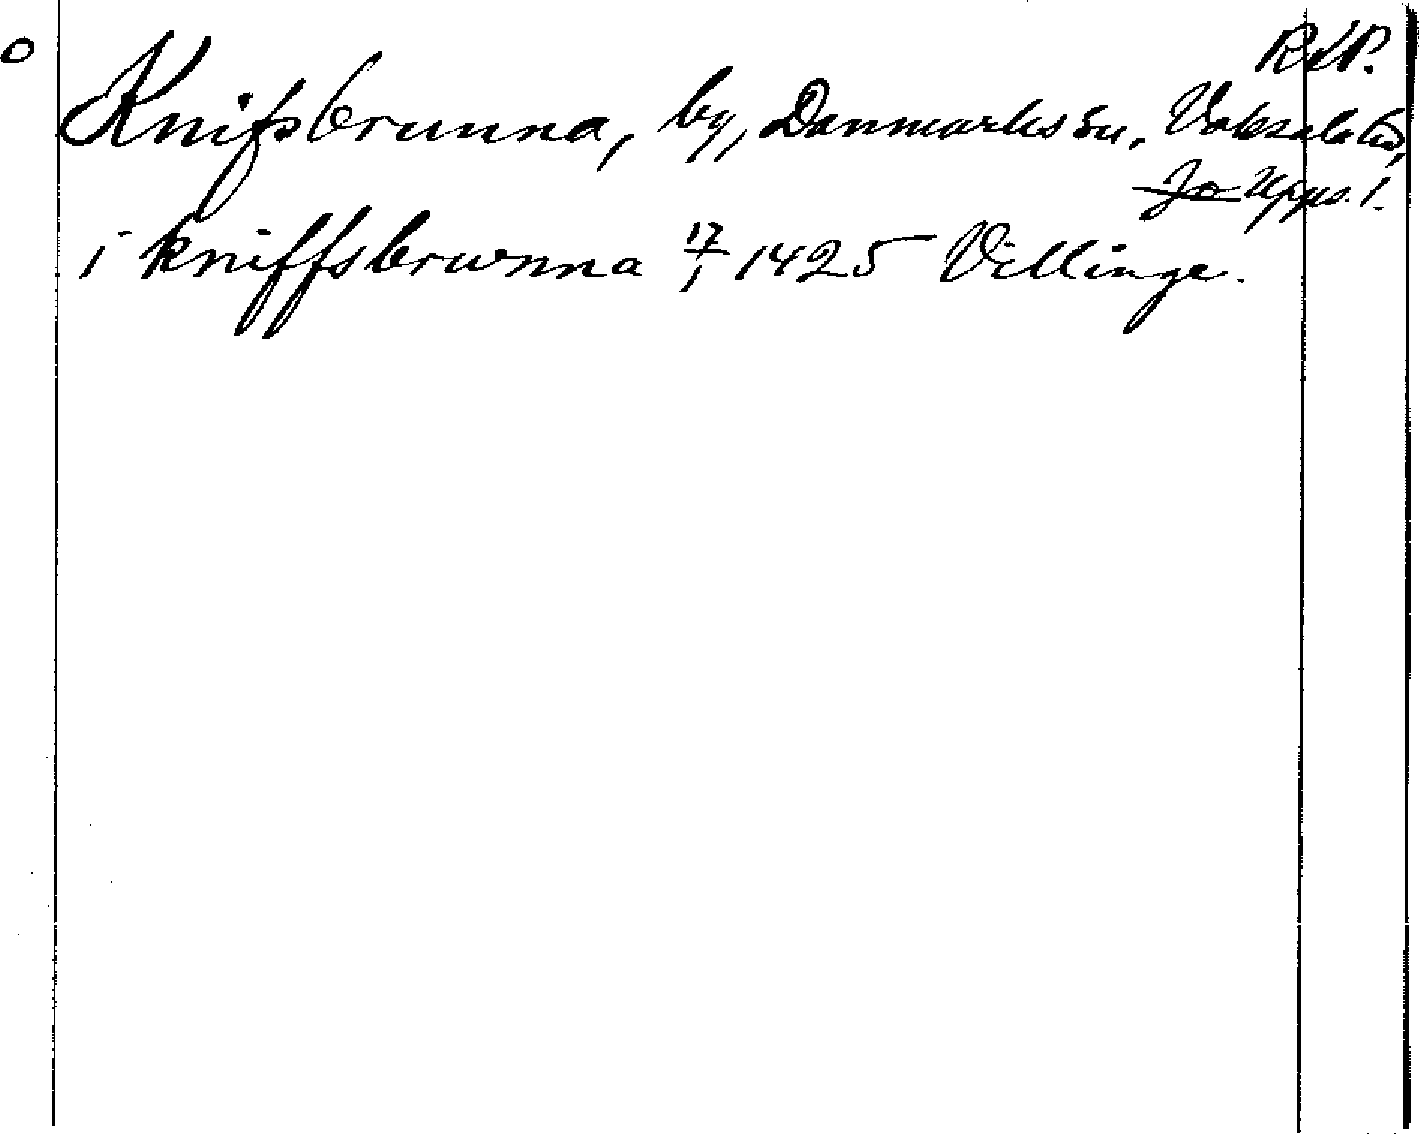 o
RAP.
Knifsbrunna, by, Danmarks sn, Vaksala hd,
Jo Upps. l.
i kniffsbrwnna 17/1 1425 Villinge.